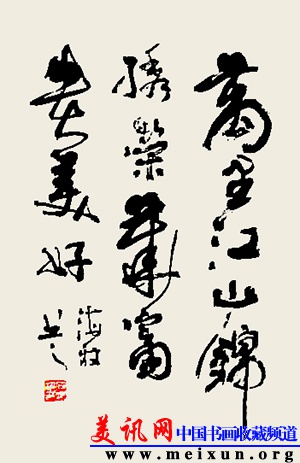 萬里江山錦
綉榮華富
貴美好
美讯网 中国书画收藏频道
www.meixun.org